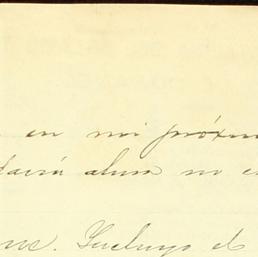 en mi próxim
daria ahora no e
me. Incluyo el